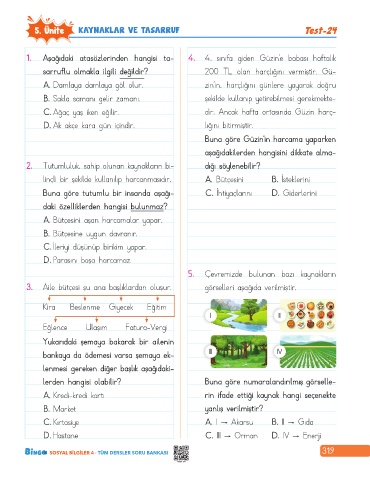 5. Ünite KAYNAKLAR VE TASARRUF
Test-24
1. Aşağıdaki atasözlerinden hangisi ta-
sarruflu olmakla ilgili değildir?
A. Damlaya damlaya göl olur.
B. Sakla samanı gelir zamanı.
C. Ağaç yaş iken eğilir.
D. Ak akçe kara gün içindir.
2. Tutumluluk, sahip olunan kaynakların bi-
linçli bir şekilde kullanılıp harcanmasıdır.
Buna göre tutumlu bir insanda aşağı-
daki özelliklerden hangisi bulunmaz?
A. Bütçesini aşan harcamalar yapar.
B. Bütçesine uygun davranır.
C. İleriyi düşünüp birikim yapar.
D. Parasını boşa harcamaz.
3. Aile bütçesi şu ana başlıklardan oluşur.
Kira Beslenme Giyecek Eğitim
Eğlence Ulaşım Fatura-Vergi
Yukarıdaki şemaya bakarak bir ailenin
bankaya da ödemesi varsa şemaya ek-
lenmesi gereken diğer başlık aşağıdaki-
lerden hangisi olabilir?
A. Kredi-kredi kartı
B. Market
C. Kırtasiye
D. Hastane
4. 4. sınıfa giden Güzin'e babası haftalık
200 TL olan harçlığını vermiştir. Gü-
zin'in, harçlığını günlere yayarak doğru
şekilde kullanıp yetirebilmesi gerekmekte-
dir. Ancak hafta ortasında Güzin harç-
lığını bitirmiştir.
Buna göre Güzin'in harcama yaparken
aşağıdakilerden hangisini dikkate alma-
dığı söylenebilir?
A. Bütçesini B. İsteklerini
C. İhtiyaçlarını D. Giderlerini
5. Çevremizde bulunan bazı kaynakların
görselleri aşağıda verilmiştir.
I II
III IV
Buna göre numaralandırılmış görselle-
rin ifade ettiği kaynak hangi seçenekte
yanlış verilmiştir?
A. I → Akarsu B. II → Gıda
C. III → Orman D. IV → Enerji
BİNGO SOSYAL BİLGİLER 4 - TÜM DERSLER SORU BANKASI
319